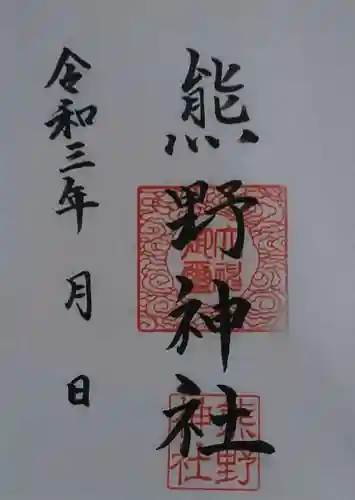 熊野神社
令和三年 月 日
熊野
神社